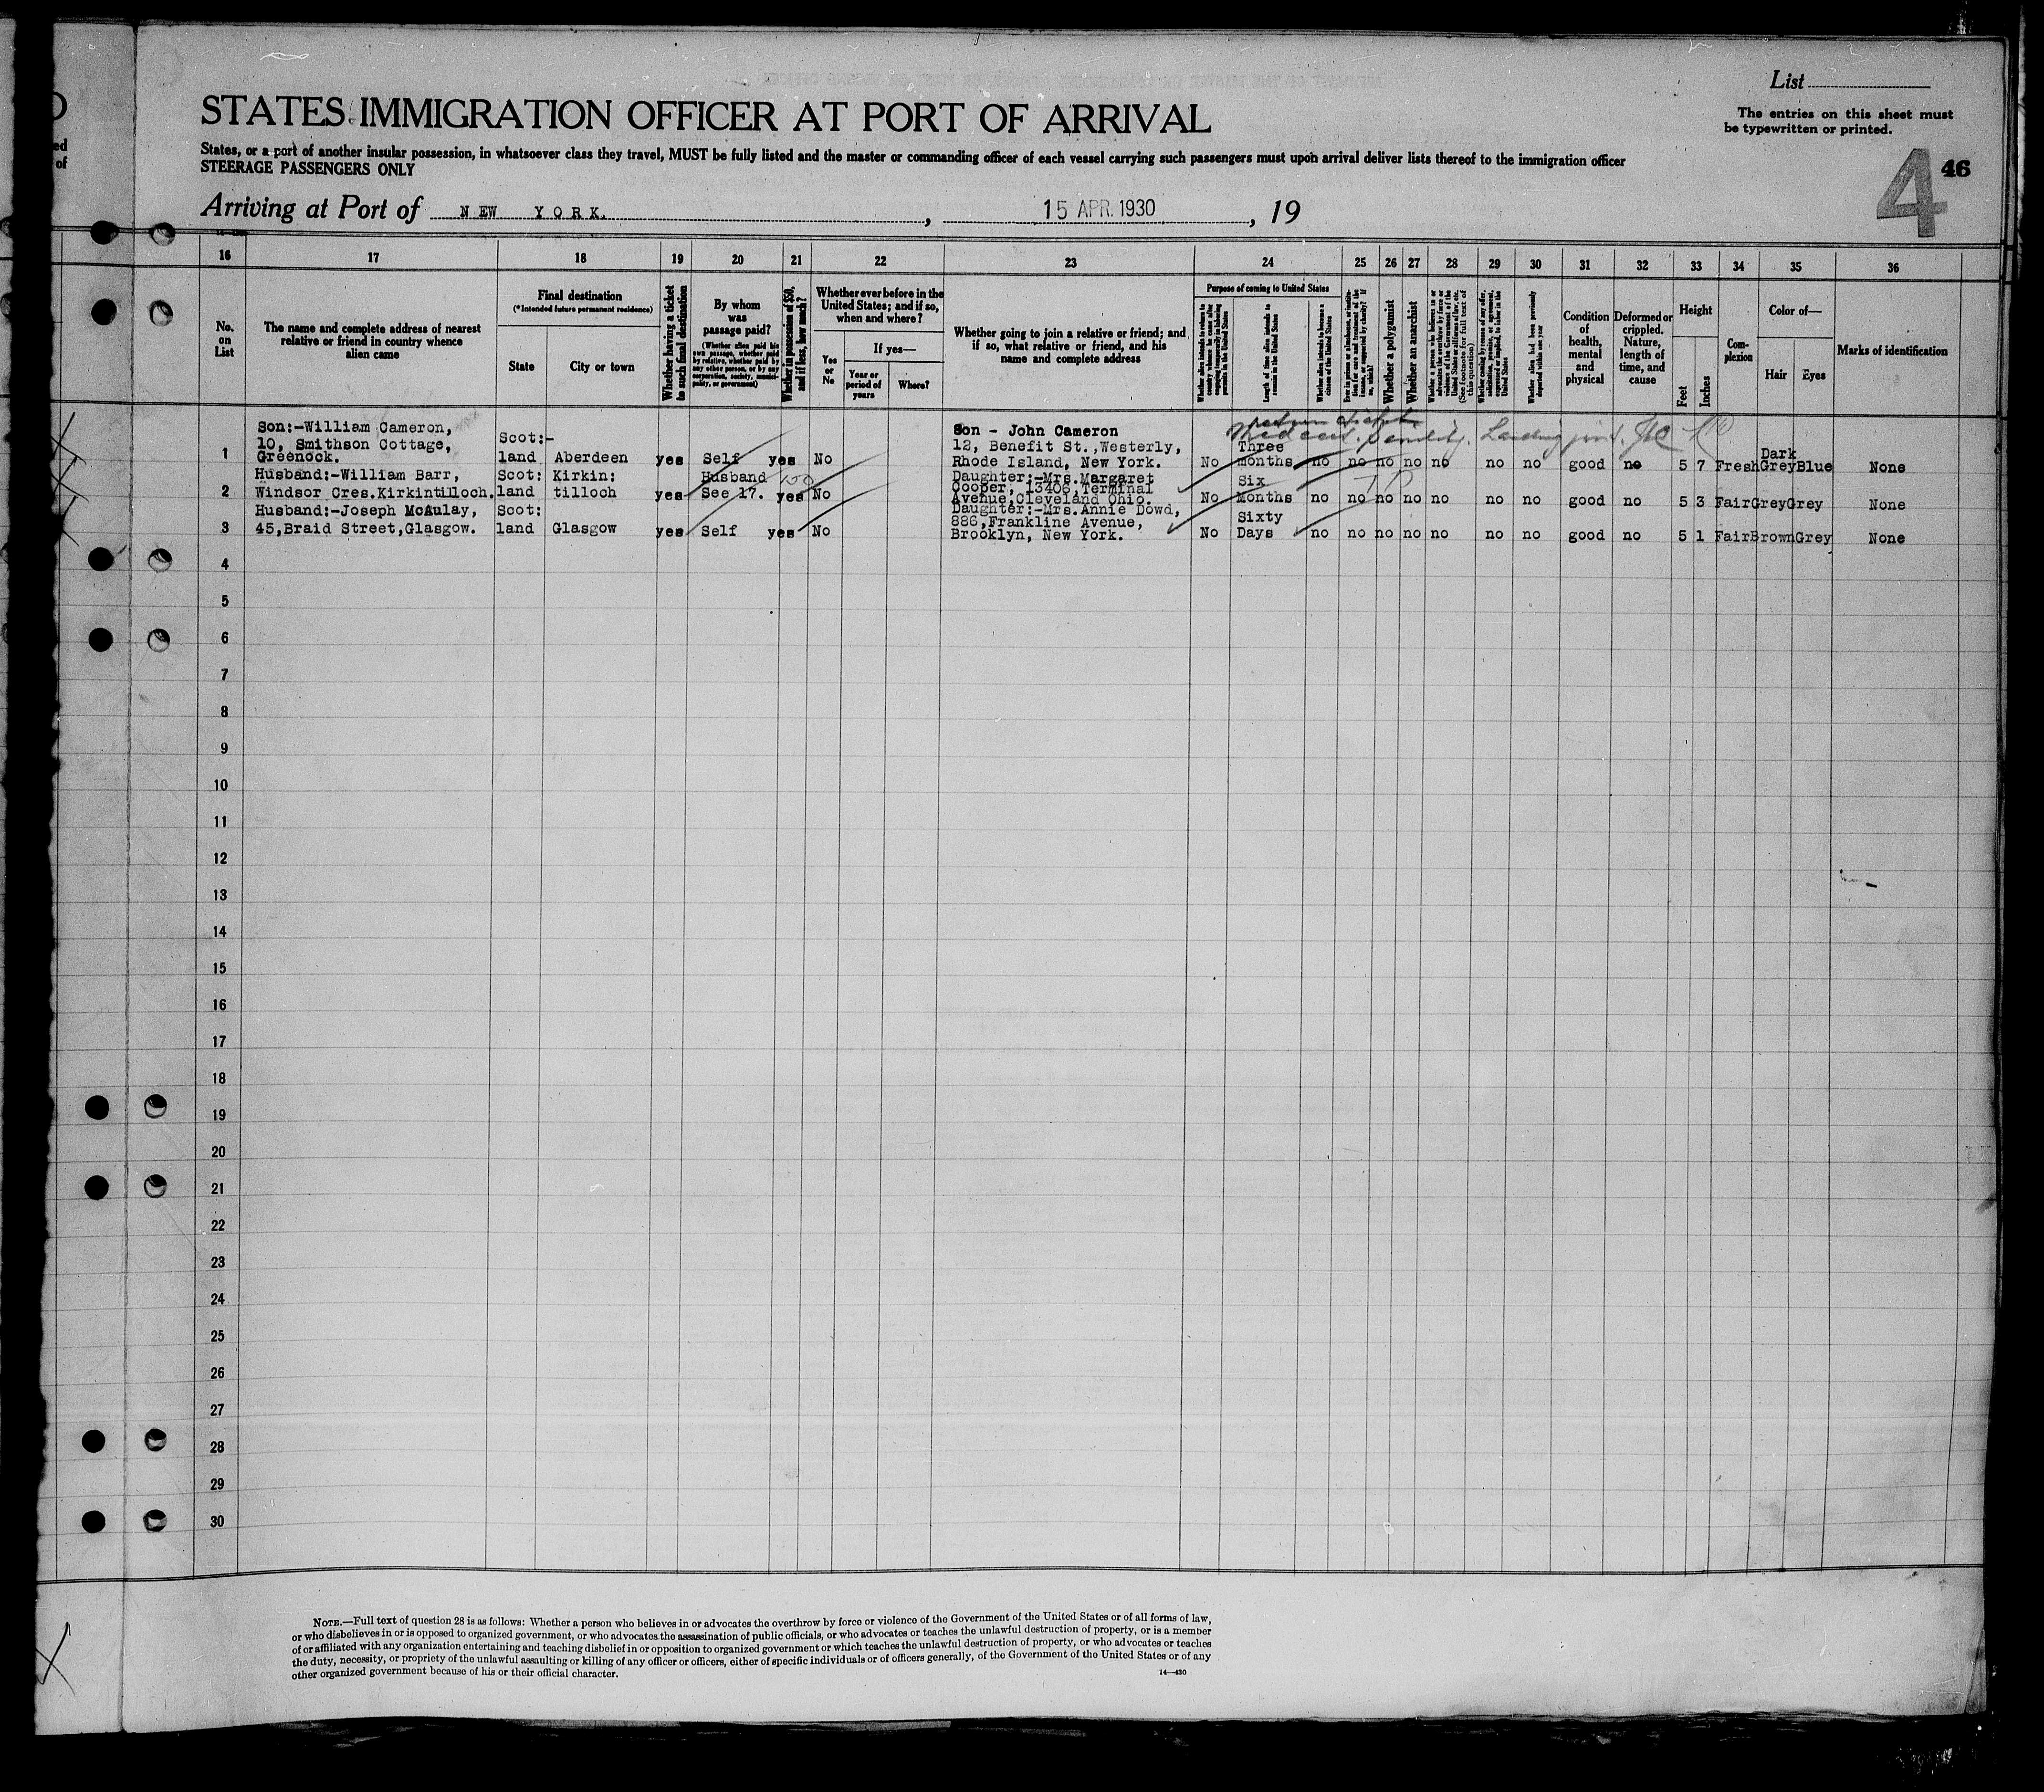 List
The entries on this sheet must
be typewritten or printed.
STATES IMMIGRATION OFFICER AT PORT OF ARRIVAL
4 46
States, or a port of another insular possession, in whatsoever class they travel, MUST be fully listed and the master or commanding officer of each vessel carrying such passengers must upon arrival deliver lists thereof to the immigration officer
STEERAGE PASSENGERS ONLY
Arriving at Port of NEW YORK. , 15 APR. 1930 , 19
16 17 18 19 20 21 22 23 24 25 26 27 28 29 30 31 32 33 34 35 36
No. on List
The name and complete address of nearest relative or friend in country whence alien came
Final destination
(*Intended future permanent residence)
State
City or town
Whether having a ticket to such final destination
By whom was passage paid?
(Whether alien paid his own passage, whether paid by relative, whether paid by any other person, or by any corporation, society, municipality, or government)
Whether in possession of $50, and if less, how much?
Whether ever before in the United States; and if so, when and where?
Yes or No
If yes—
Year or period of years
Where?
Whether going to join a relative or friend; and if so, what relative or friend, and his name and complete address
Purpose of coming to United States
Whether alien intends to return to country whence he came after engaging temporarily in laboring pursuits in the United States
Length of time alien intends to remain in the United States
Whether alien intends to become a citizen of the United States
Whether a polygamist
Whether an anarchist
(See footnote for full text of this question)
Whether alien had been previously deported within one year
Condition of health, mental and physical
Deformed or crippled. Nature, length of time, and cause
Height
Feet
Inches
Com-plexion
Color of—
Hair
Eyes
Marks of identification
return ticket
Med cert. Senility. Landing
1 Son:-William Cameron, 10, Smithson Cottage, Greenock. Scot:-land Aberdeen yes Self yes No Son - John Cameron 12, Benefit St.,Westerly, Rhode Island, New York. No Three months no no no no no no no good no 5 7 Fresh Dark Grey Blue None
2 Husband:-William Barr, Windsor Cres.Kirkintilloch. Scot:land Kirkin:tilloch yes Husband See 17. 150 yes No Daughter:-Mrs.Margaret Cooper, 13406,Terminal Avenue,Cleveland Ohio. No Six Months no no no no no no no good no 5 3 Fair Grey Grey None
3 Husband:-Joseph McAulay, 45,Braid Street,Glasgow. Scot:land Glasgow yes Self yes No Daughter:-Mrs.Annie Dowd, 886,Frankline Avenue, Brooklyn, New York. No Sixty Days no no no no no no no good no 5 1 Fair Brown Grey None
4
5
6
7
8
9
10
11
12
13
14
15
16
17
18
19
20
21
22
23
24
25
26
27
28
29
30
NOTE.—Full text of question 28 is as follows: Whether a person who believes in or advocates the overthrow by force or violence of the Government of the United States or of all forms of law,
or who disbelieves in or is opposed to organized government, or who advocates the assassination of public officials, or who advocates or teaches the unlawful destruction of property, or is a member
of or affiliated with any organization entertaining and teaching disbelief in or opposition to organized government or which teaches the unlawful destruction of property, or who advocates or teaches
the duty, necessity, or propriety of the unlawful assaulting or killing of any officer or officers, either of specific individuals or of officers generally, of the Government of the United States or of any
other organized government because of his or their official character.
14—430